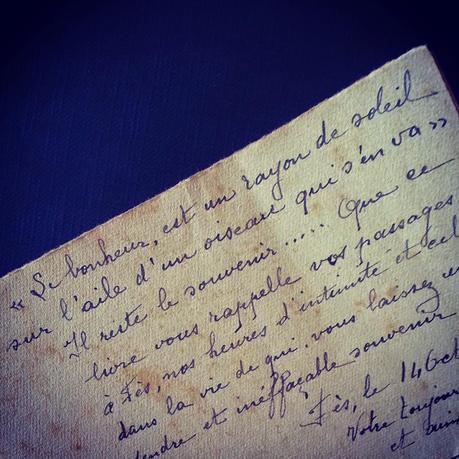 « Le bonheur, est un rayon de soleil
sur l'aile d'un oiseau qui s'en va »
Il reste le souvenir..... Que ce
livre vous rappelle vos passages
à Fès, nos heures d'intimité et cel
dans la vie de qui vous laissez u
tendre et ineffaçable souvenir
Fès, le 14 Oct
Votre toujours
et